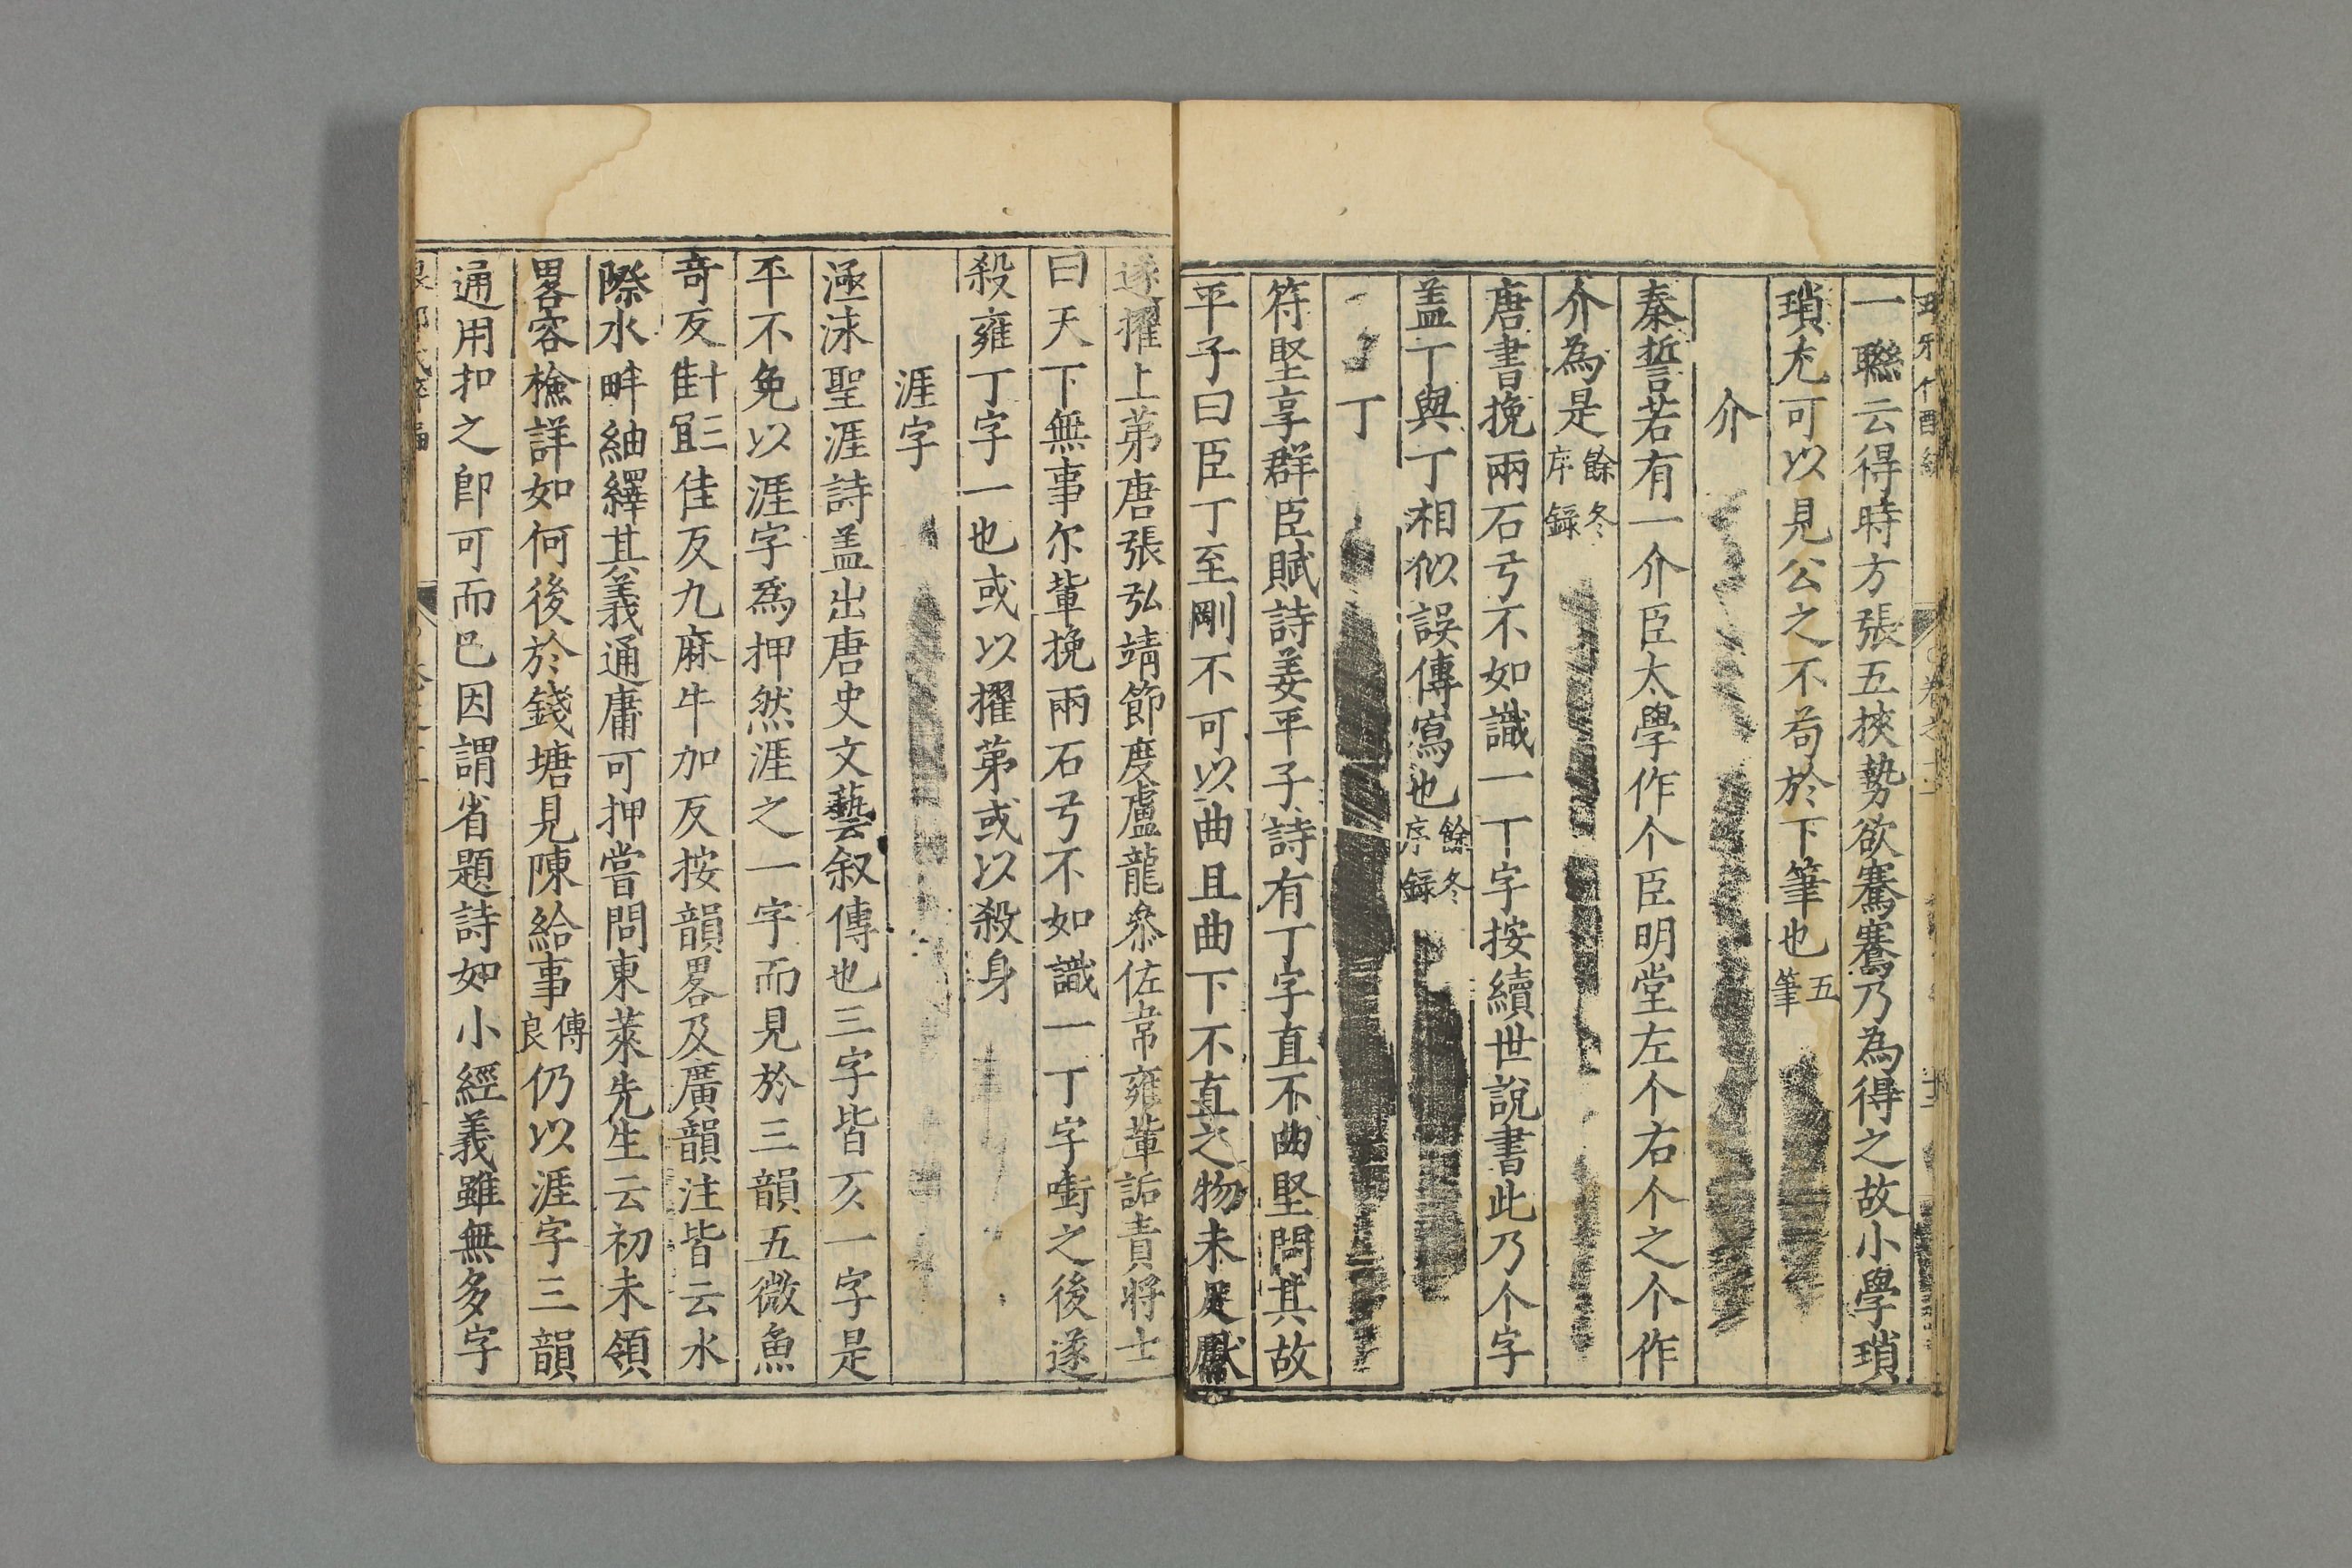 一聯云得時方張五挾勢欲騫騫乃為得之故小學瑣
瑣尤可以見公之不苟於下筆也五筆
介
秦誓若有一介臣太學作个臣明堂左个右个之个作
介為是餘冬序録
唐書挽兩石弓不如識一丁字按續世說書此乃个字
盖丁與丁相似誤傳寫也餘冬序録
丁
符堅享群臣賦詩姜平子詩有丁字直不曲堅問其故
平子曰臣丁至剛不可以曲且曲下不直之物未足獻
遂擢上第唐張弘靖節度盧龍叅佐韋雍軰詬責将士
曰天下無事尔軰挽兩石弓不如識一丁字啣之後遂
殺雍丁字一也或以擢第或以殺身
涯字
涶沫聖涯詩盖出唐史文藝叙傳也三字皆亥一字是
平不免以涯字爲押然涯之一字而見於三韻五微魚
竒反十三佳宜佳反九麻牛加反按韻畧及廣韻注皆云水
際水畔紬繹其義通庸可押嘗問東萊先生云初未領
畧容檢詳如何後於錢塘見陳給事傅良仍以涯字三韻
通用扣之即可而已因謂省題詩如小經義雖無多字